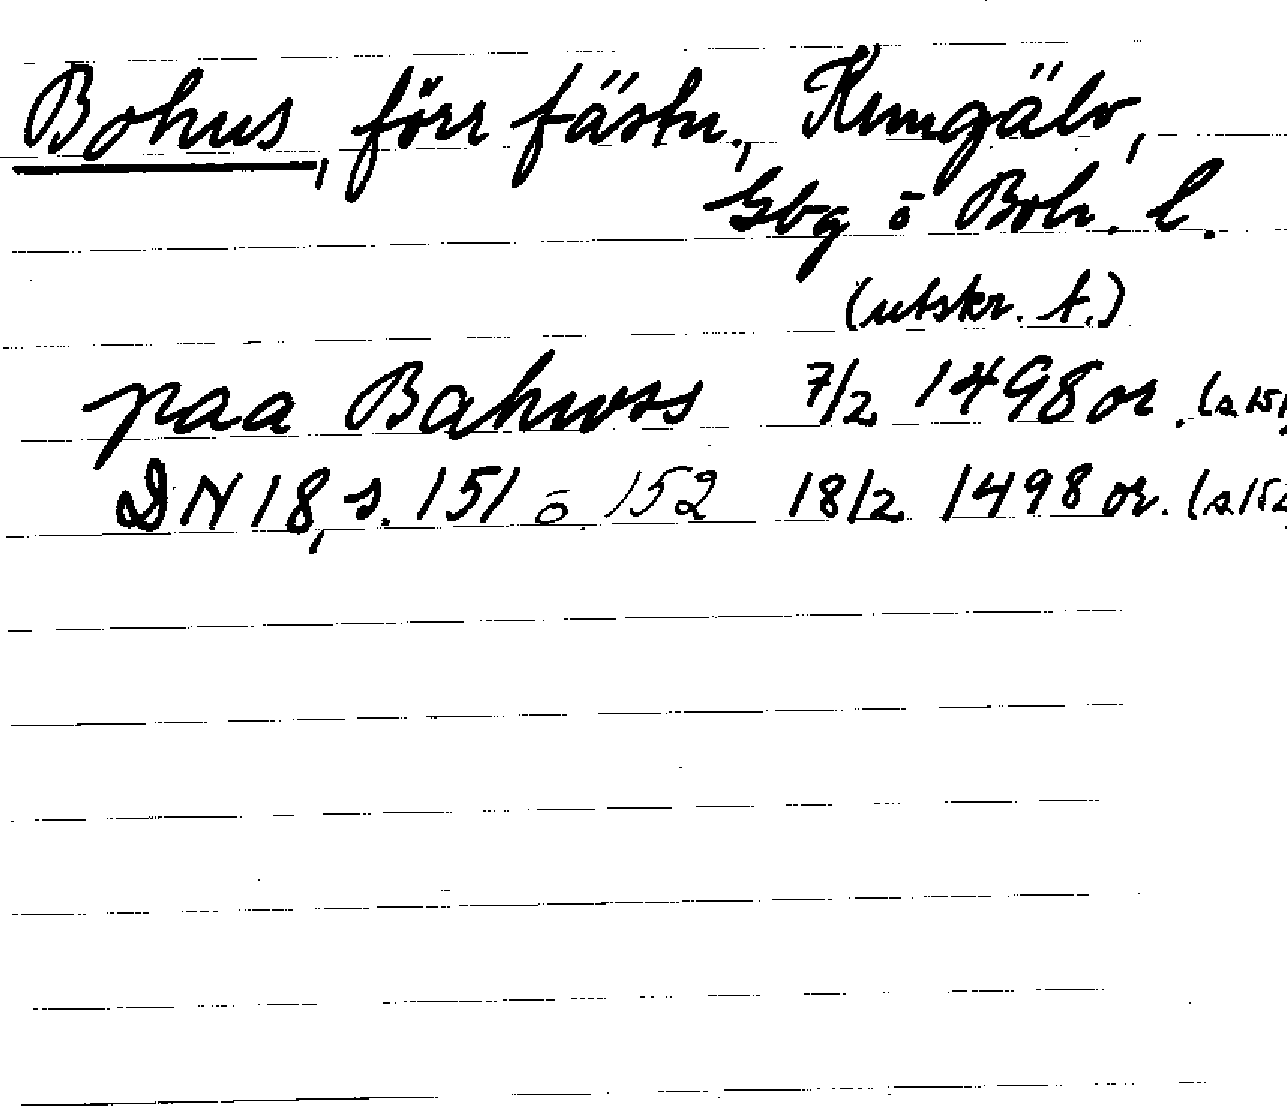 Bohus, förr fästn., Kungälv,
Gbg o Boh. l.
(utskr. t.)
paa Bahwss 7/2 1498 or. (s 151
DN 18, s. 151 o. 152 18/2 1498 or. (s 152